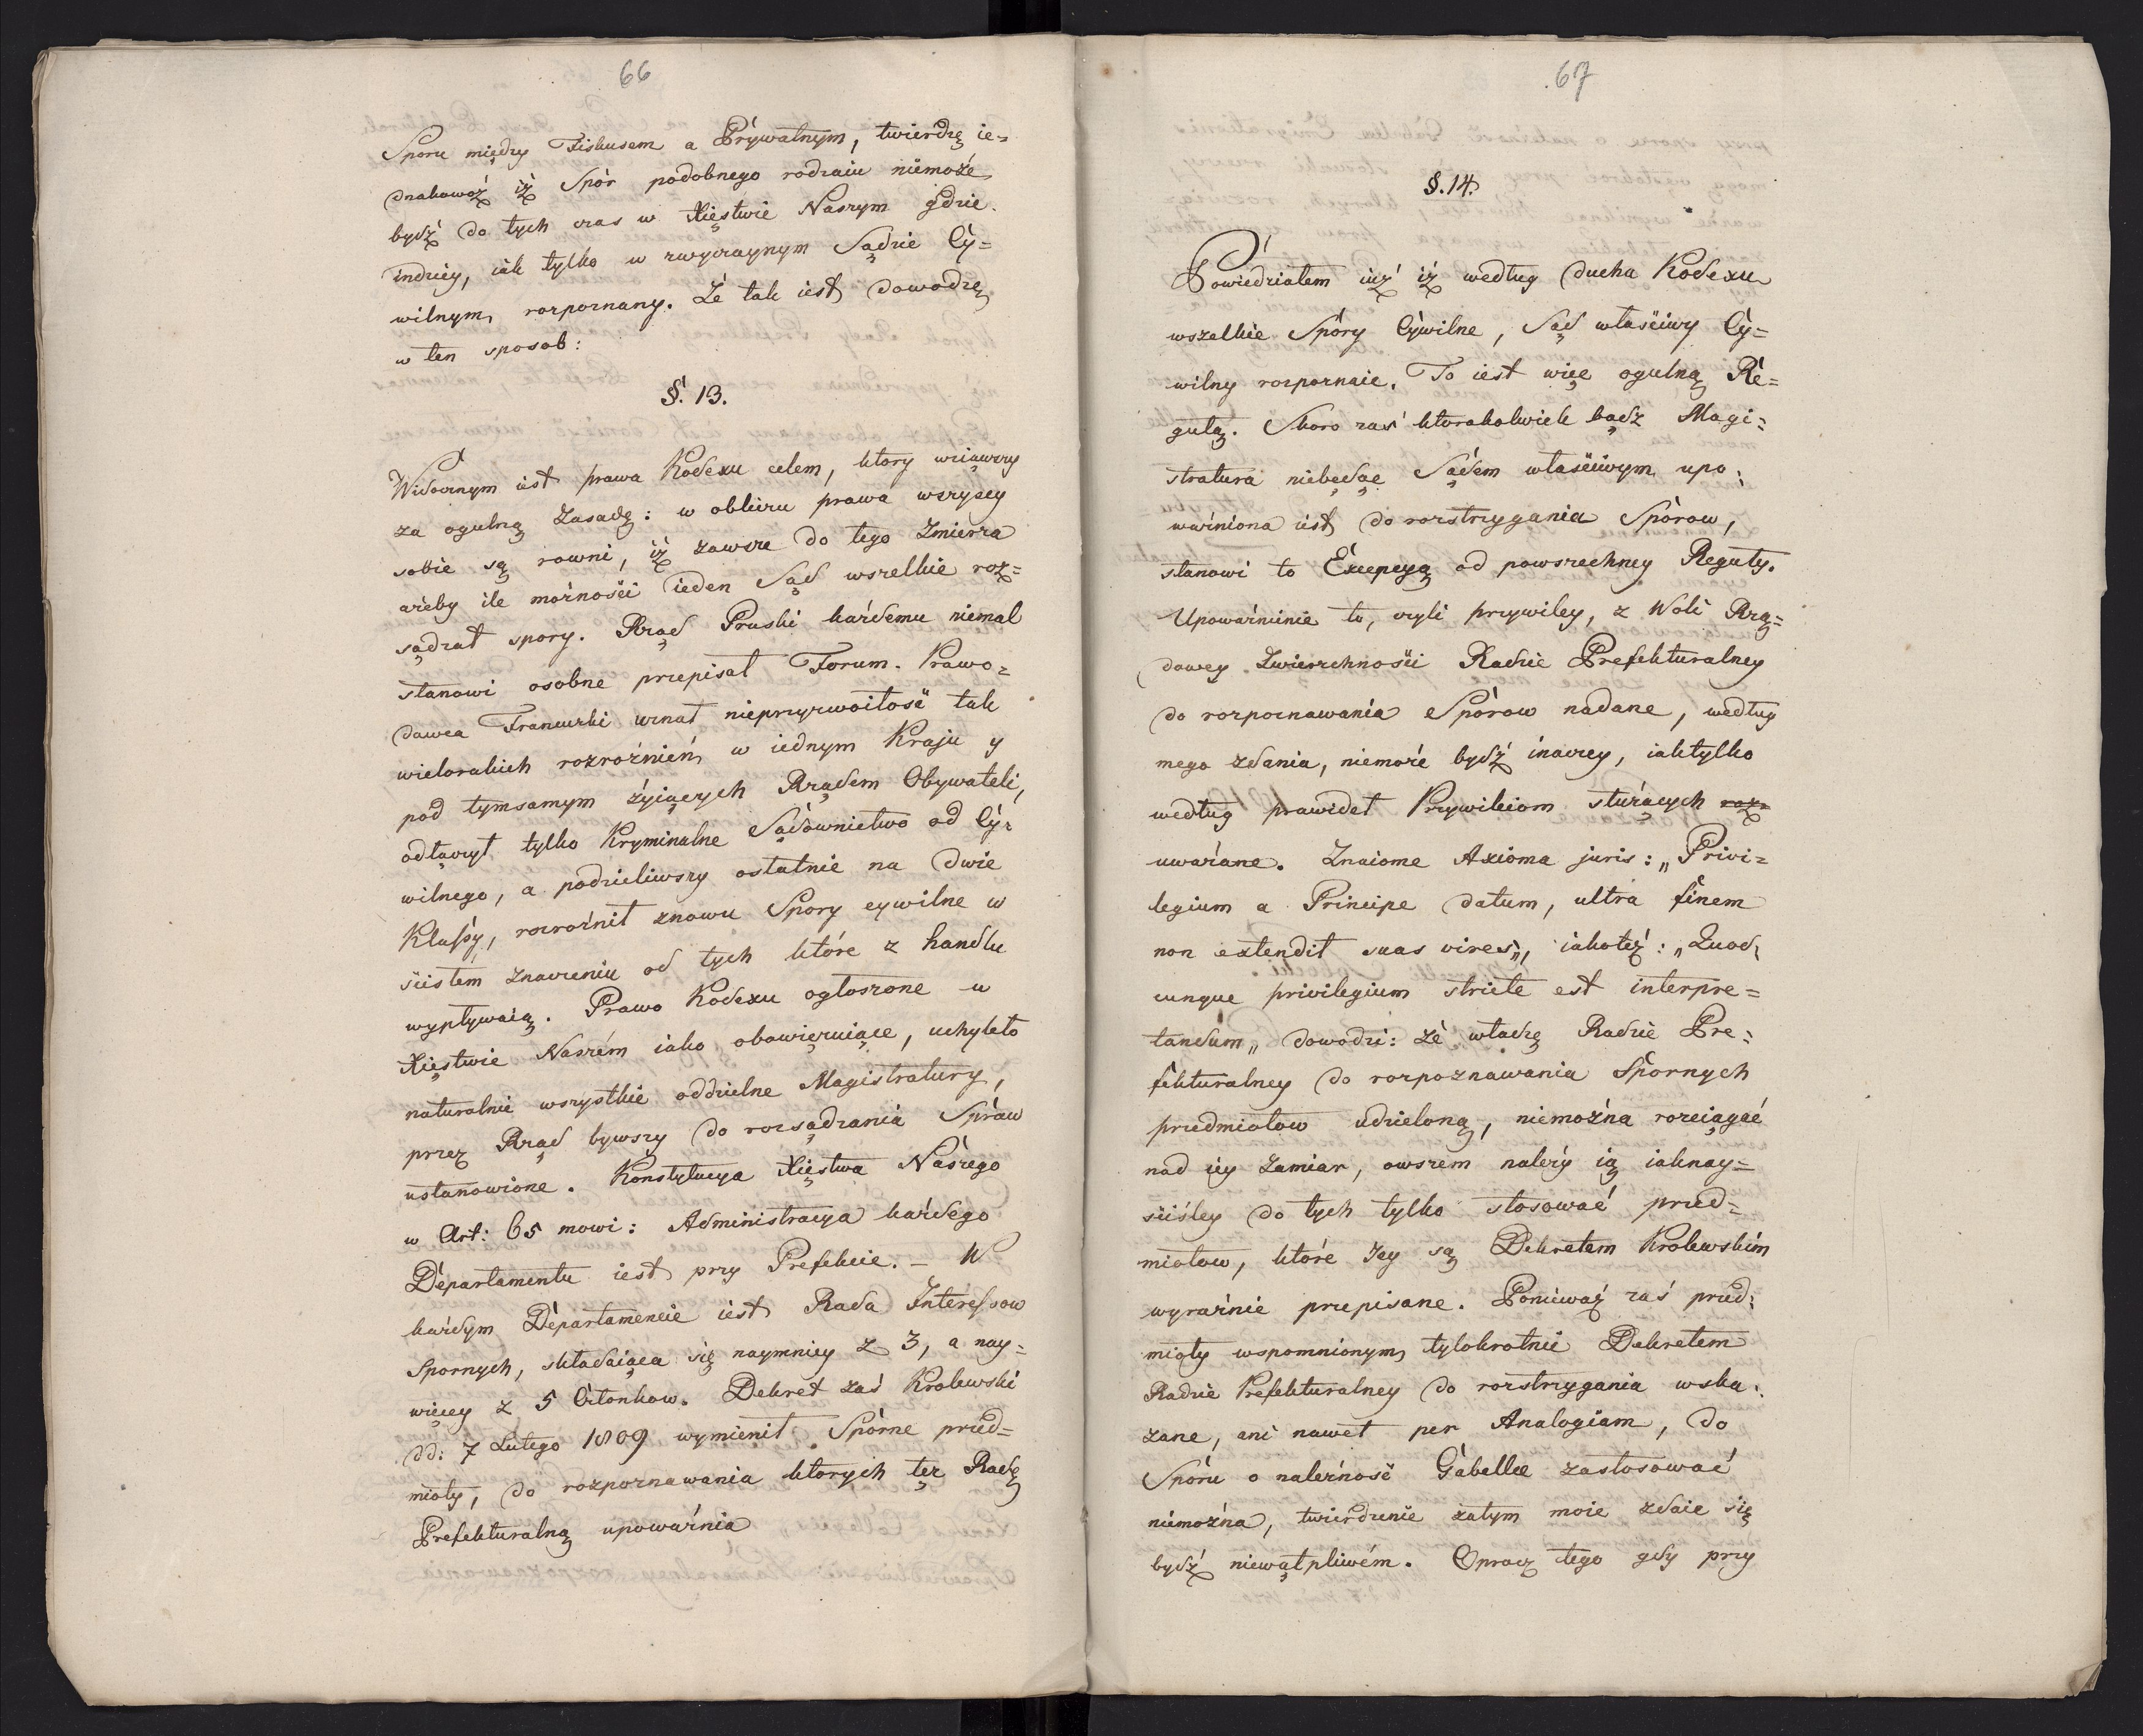 66
Sporu między Fiskusem a Prywatnym, twierdzę ie=
dnakowoż iż Spór podobnego rodzaiu niemoże
bydź do tych czas w Xięstwie Naszym gdzie
indziey, iak tylko w zwyczaynym Sądzie Cy=
wilnym rozpoznany. Że tak iest dowodzę
w ten sposob:
§. 13.
Widocznym iest prawa Kodexu celem, ktory wziąwszy
za ogulną Zasadę: w obliczu prawa wszyscy
sobie są rowni, iż zawsze do tego Zmierza
ażeby ile możności ieden Sąd wszelkie roz=
sądzał spory. Rząd Pruski każdemu niemal
stanowi osobne przepisał Forum. Prawo=
dawca Francuzki uznał nieprzyzwoitość tak
wielorakich rozrożnień w iednym Kraju y
pod tymsamym żyiących Rządem Obywateli,
odłączył tylko Kryminalne Sądownictwo od Cy=
wilnego, a podzieliwszy ostatnie na dwie
Klassy, rozrożnił znowu Spory cywilne w
ścistem znaczeniu od tych które z handlu
wypływaią. Prawo Kodexu ogłoszone w
Xięstwie Naszém iako obowięzuiące, uchyleło
naturalnie wszystkie oddzielne Magistratury,
przez Rząd bywszy do rozsądzania Spraw
ustanowione. Konstytucya Xięstwa Naszego
w Art: 65 mowi: Administracya każdego
Departamentu iest przy Prefekcie. – W
każdym Departamencie iest Rada Interessow
Spornych, składaiąca się naymniey z 3, a nay=
więcey z 5 Członkow. Dekret zaś Krolewski
dd: 7 Lutego 1809 wymienił Spórne przed=
mioty, do rozpoznawania ktorych tez Radę
Prefekturalną upoważnia
67
§. 14.
Powiedziałem iuż iż według ducha Kodexu
wszelkie Spóry Cywilne, Sąd właściwy Cy=
wilny rozpoznaie. To iest więc ogulną Re=
gułą. Skoro zaś ktorakolwiek bądz Magi=
stratura niebędąc Sądem właściwym upo=
ważniona iest do rozstrzygania Spórow,
stanowi to Excepcyą od powszechney Reguły.
Upoważnienie to, czyli przywiley, z Woli Rzą=
dowey Zwierzchności Radzie Prefekturalney
do rozpoznawania Spórow nadane, według
mego zdania, niemoże bydź inaczey, iaktylko
według prawideł Przywileiom służących raz
uważane. Znaiome Axioma juris: „Privi=
legium a Principe datum, ultra finem
non extendit suas vires„, iakoteż: „Quod=
cunque privilegium stricte est interpre=
tandum„ dowodzi: że władzę Radzie Pre=
fekturalney do rozpoznawania Spornych
przedmiotow udzieloną, niemożna rozciągać
nad iey zamiar, owszem należy ią iaknay=
ściśley do tych tylko stosować przed=
miotow, które Jey są Dekretem Krolewskim
wyraźnie przepisane. Ponieważ zaś przed=
mioty wspomnionym tylokrotnie Dekretem
Radzie Prefekturalney do rozstrzygania wska=
zane, ani nawet per Analogiam, do
Spóru o należność Gabellæ zastosować
niemożna, twierdzenie zatym moie zdaie się
bydź niewątpliwém. Oprocz tego gdy przy